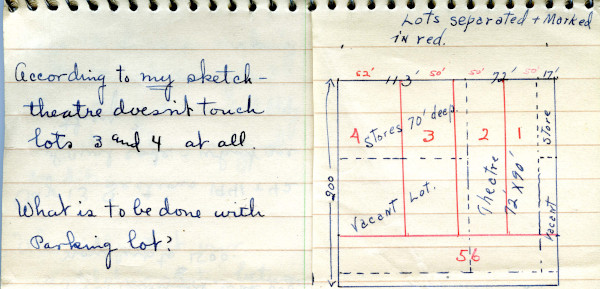 According to my sketch-
theatre doesn't touch
lots 3 and 4 at all.
What is to be done with
Parking lot?
Lots separated + Marked
in red.
52' 113' 50' 50' 72' 50' 17'
200
4 Stores 70' deep 3 2 1
Vacant Lot.
Theatre
72 X 90'
Store
Vacant
56